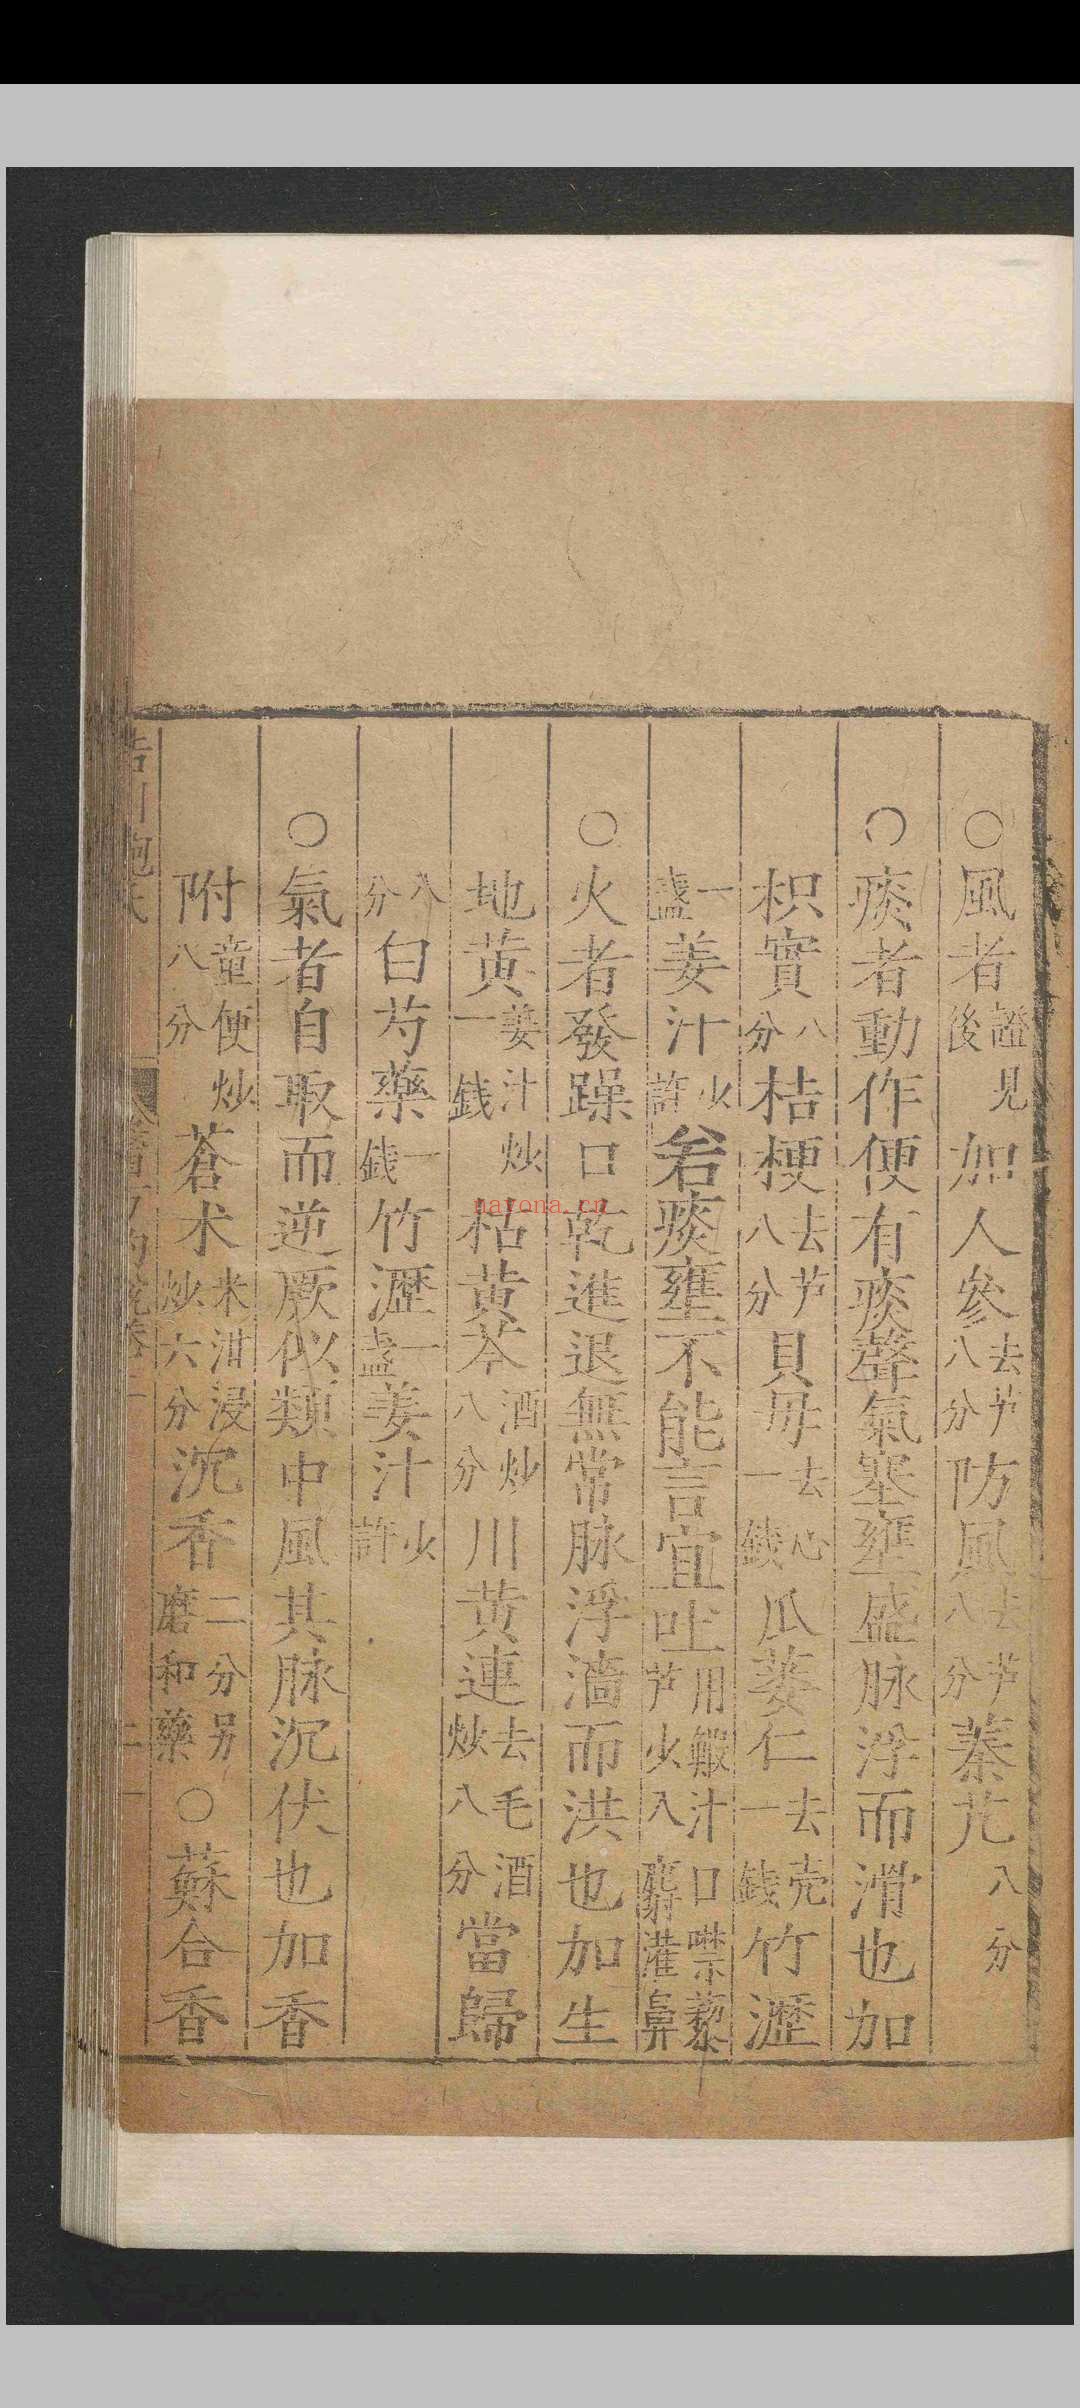 ○風者證見後加人參去芦八分防風去芦八分蓁艽八分
○痰者動作便有痰聲氣塞壅盛脉浮而滑也加
枳實八分桔梗去芦八分貝母去心一錢瓜蔞仁去壳一錢竹瀝
一盞姜汁火許若痰壅不能言宜吐用蝦汁芦火入口噤藜麝灌鼻
○火者發躁口乾進退無常脉浮濇而洪也加生
地黄姜汁炒一錢枯黄芩酒炒八分川黄連去毛酒炒八分當歸
八分白芍藥一錢竹瀝一盞姜汁火許
○氣者自取而逆厥似類中風其脉沉伏也加香
附童便炒八分蒼术米泔浸炒六分沉香二分另磨和藥○蘇合香
nayona.cn